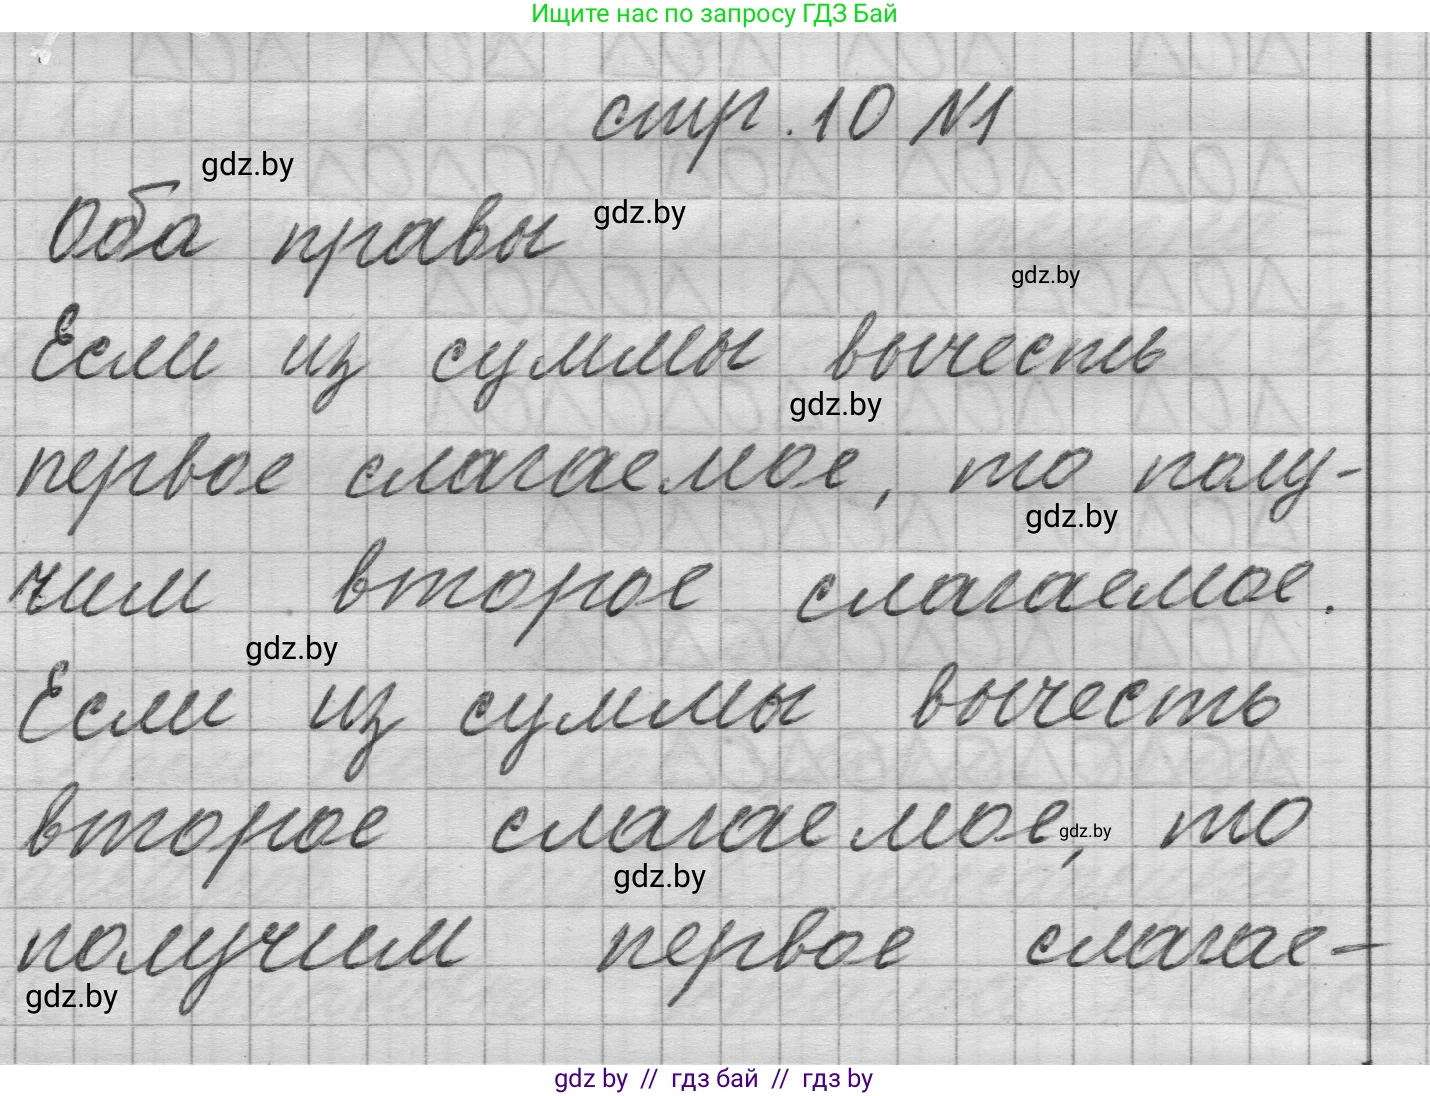 Ищите нас по запросу ГДЗ Бай
стр. 10 №1
gdz.by
Оба правы
gdz.by
gdz.by
Если из суммы вычесть
gdz.by
первое слагаемое, то полу-
gdz.by
чим второе слагаемое.
gdz.by
Если из суммы вычесть
второе слагаемое, то
gdz.by
gdz.by
получим первое слагае-
gdz.by
gdz by // гдз бай // гдз by